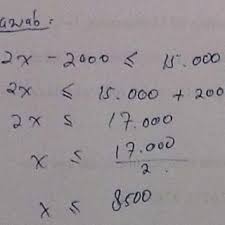 Jawab:
2x - 2000 ≤ 15.000
2x ≤ 15.000 + 200
2x ≤ 17.000
x ≤ 17.000
2
x ≤ 8500